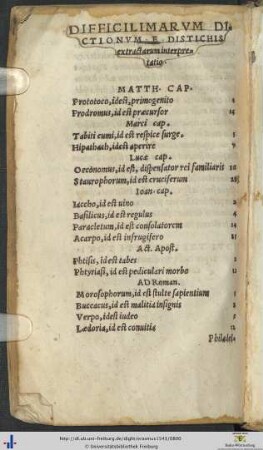 DIFFICILIMARVM DI-
CTIONVM E DISTICHIS
extractarum interpre-
tatio
MATTH. CAP.
Prototoco, idest, primogenito 1
Prodromus, id est præcursor 14
Marci cap.
Tabiti cumi, id est respice surge. 5
Hipathach, id est aperire 7
Lucæ cap.
Oeconomus, id est, dispensator rei familiaris 16
Staurophorum, id est cruciferum
Ioan. cap.
Iaccho, id est uino 2
Basilicus, id est regulus 4
Paracletum, id est consolatorem 14
Acarpo, id est infrugifero
Act. Apost.
Phtisis, id est tabes
Phtyriasi, id est pediculari morbo 12
AD Roman.
Morosophorum, id est stulte sapientium 1
Buccacus, id est malitia insignis
Verpo, idest iudeo
Lædoria, id est conuitia 12
Philadel-
http://dl.ub.uni-freiburg.de/diglit/
© Universitätsbibliothek Freiburg